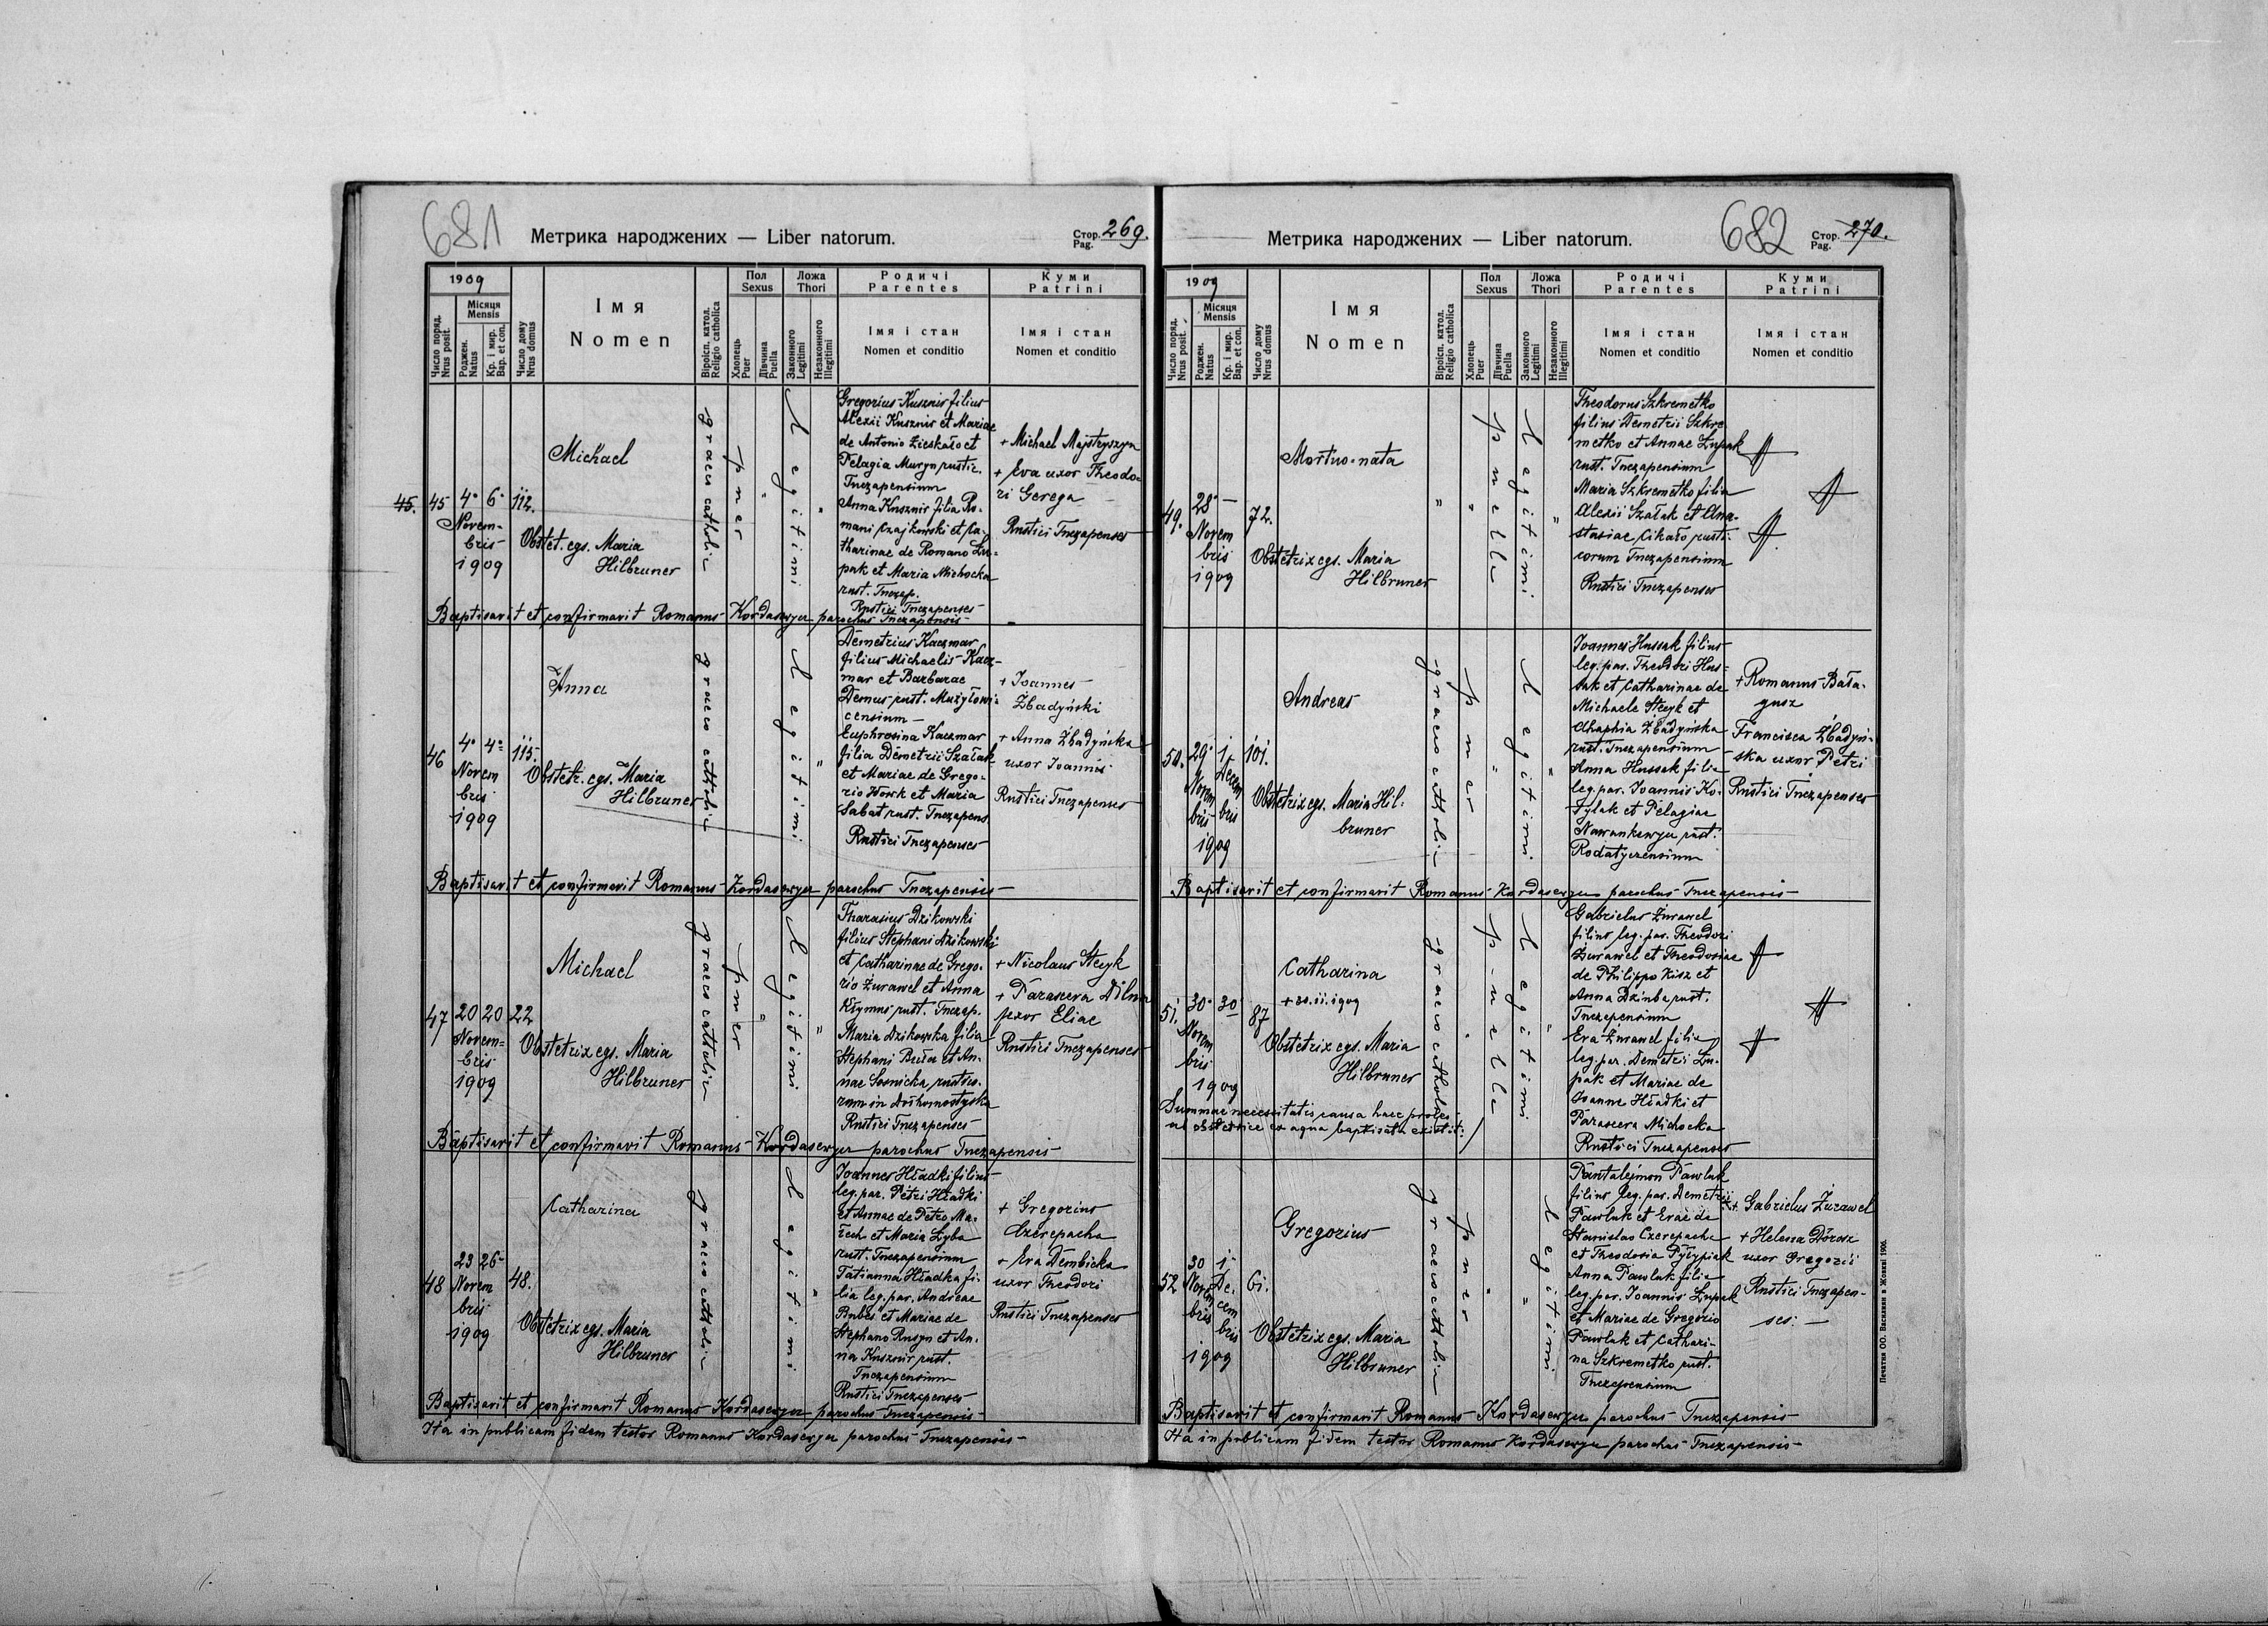 681
Метрика народжених — Liber natorum.
Стор. Pag. 269.
1909
Число поряд. Nrus posit.
Місяця Mensis
Роджен. Natus
Кр. і мир. Bap. et con.
Число дому Nrus domus
Імя
Nomen
Віроісп. катол. Religio catholica
Пол Sexus
Хлопець Puer
Дівчина Puella
Ложа Thori
Законного Legitimi
Незаконного Illegitimi
Родичі Parentes
Імя і стан
Nomen et conditio
Куми Patrini
Імя і стан
Nomen et conditio
45. 45 4. 6. 112.
Novem-
bris
1909
Michael
Obstet. egs. Maria
Hilbruner
graeco catholic
puer
Legitimi
Gregorius Kusznir filius
Alexii Kusznir et Mariae
de Antonio Zieskało et
Pelagia Muryn rustic.
Tnezapensium
Anna Kusznir filia Ro-
mani Czajkowski et Ca-
tharinae de Romano Lu-
pak et Maria Michocka
rust. Tnezap.
Rustici Tnezapenses
+ Michael Majstryszyn
+ Eva uxor Theodo-
ri Gerega
Rustici Tnezapenses
Baptisavit et confirmavit Romanus Kordasewycz parochus Tnezapensis
46 4. 4. 115.
Novem
bris
1909
Anna
Obstetr. egs. Maria
Hilbruner
graeco catholic
Legitimi
Demetrius Kaczmar
filius Michaelis Kacz-
mar et Barbarae
Demus rust. Mużyłowi-
censium
Euphrosina Kaczmar
filia Demetrii Szałak
et Mariae de Grego-
rio Wowk et Maria
Sabat rust. Tnezapens
Rustici Tnezapenses
+ Ioannes
Zbadyński
+ Anna Zbadyńska
uxor Ioannis
Rustici Tnezapenses
Baptisavit et confirmavit Romanus Kordasewycz parochus Tnezapensis
47 20 20 22
Novem-
bris
1909
Michael
Obstetrix egs. Maria
Hilbruner
graeco catholic
puer
Legitimi
Tharasius Dzikowski
filius Stephani Dzikowski
et Catharinae de Grego-
rio Żurawel et Anna
Kłymus rust. Tnezap.
Maria Dzikowska filia
Stephani Buła et An-
nae Sosnicka rustico-
rum in Dołhomostyska
Rustici Tnezapenses
+ Nicolaus Stecyk
+ Parasceva Dilna
uxor Eliae
Rustici Tnezapenses
Baptisavit et confirmavit Romanus Kordasewycz parochus Tnezapensis
48 23 26 48.
Novem
bris
1909
Catharina
Obstetrix egs. Maria
Hilbruner
graeco catholic
Legitimi
Ioannes Hładki filius
leg. par. Petri Hładki
et Annae de Petro Ma-
rech et Maria Lyba
rust. Tnezapensium
Tatianna Hładka fi-
lia leg. par. Andreae
Bubes et Mariae de
Stephano Rusyn et An-
na Kusznir rust.
Tnezapensium
Rustici Tnezapenses
+ Gregorius
Czerepacha
+ Eva Dembicka
uxor Theodori
Rustici Tnezapenses
Baptisavit et confirmavit Romanus Kordasewycz parochus Tnezapensis
Ita in publicam fidem testor Romanus Kordasewycz parochus Tnezapensis
682
Метрика народжених — Liber natorum.
Стор. Pag. 270.
1909
Число поряд. Nrus posit.
Місяця Mensis
Роджен. Natus
Кр. і мир. Bap. et con.
Число дому Nrus domus
Імя
Nomen
Віроісп. катол. Religio catholica
Пол Sexus
Хлопець Puer
Дівчина Puella
Ложа Thori
Законного Legitimi
Незаконного Illegitimi
Родичі Parentes
Імя і стан
Nomen et conditio
Куми Patrini
Імя і стан
Nomen et conditio
49. 28. — 72.
Novem
bris
1909
Mortuo-nata
Obstetrix egs. Maria
Hilbruner
puella
Legitimi
Theodorus Szkremetko
filius Demetrii Szkre-
metko et Annae Lupak
rust. Tnezapensium
Maria Szkremetko filia
Alexii Szałak et Ana-
stasiae Cikało rusti-
corum Tnezapensium
Rustici Tnezapenses
50. 29. 1. 101.
Novem
bris
Decem
bris
1909
Andreas
Obstetrix egs. Maria Hil-
bruner
graeco catholic
puer
Legitimi
Ioannes Hussak filius
leg. par. Theodori Hus-
sak et Catharinae de
Michaele Stecyk et
Ahaphia Zbadyńska
rust. Tnezapensium
Anna Hussak filia
leg. par. Ioannis Ko-
tylak et Pelagiae
Nawankewycz rust.
Rodatyczensium
+ Romanus Bała-
gusz
Francisca Zbadyń-
ska uxor Petri
Rustici Tnezapenses
Baptisavit et confirmavit Romanus Kordasewycz parochus Tnezapensis
51. 30. 30 87
Novem
bris
1909
Catharina
+ 30.11.1909
Obstetrix egs. Maria
Hilbruner
graeco catholic
puella
Legitimi
Summae necessitatis causa haec proles
ab obstetrice ex aqua baptisata existit.
Gabrielus Żurawel
filius leg. par. Theodori
Żurawel et Theodosiae
de Philippo Kisz et
Anna Dziuba rust.
Tnezapensium
Eva Żurawel filia
leg. par. Demetrii Lu-
pak et Mariae de
Ioanne Hładki et
Parasceva Michocka
Rustici Tnezapenses
52 30 1. 61.
Novem
bris
De-
cem
bris
1909
Gregorius
Obstetrix egs. Maria
Hilbruner
graeco catholic
puer
Legitimi
Pantalejmon Pawluk
filius leg. par. Demetrii
Pawluk et Evae de
Stanislao Czerepacha
et Theodosia Pyłypiak
Anna Pawluk filia
leg. par. Ioannis Lupak
et Mariae de Gregorio
Pawluk et Cathari-
na Szkremetko rust.
Tnezapensium
+ Gabrielus Żurawel
+ Helena Dorosz
uxor Gregorii
Rustici Tnezapen-
ses. —
Baptisavit et confirmavit Romanus Kordasewycz parochus Tnezapensis
Ita in publicam fidem testor Romanus Kordasewycz parochus Tnezapensis
Печатня ОО. Василиян в Жовкві 1906.